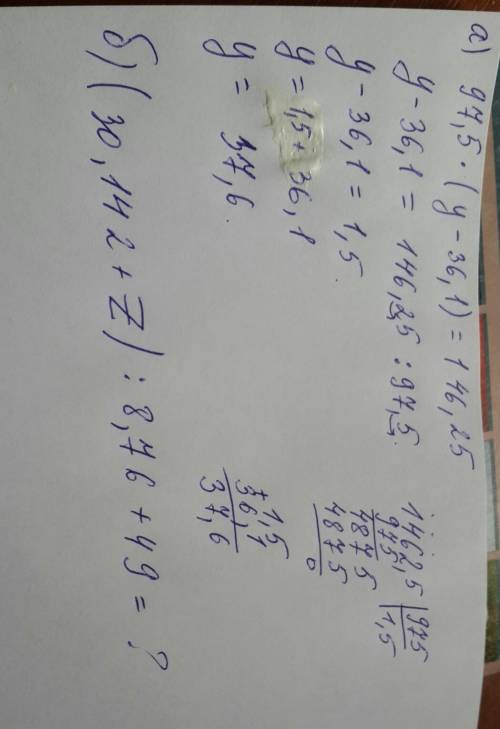 а) 97,5 · (y - 36,1) = 146,25
y - 36,1 = 146,25 : 97,5.
y - 36,1 = 1,5
y = 1,5 + 36,1
y = 37,6.
1462,5 | 975
975 | 1,5
4875
4875
0
+ 1,5
36,1
37,6
б) (30,142 + Z) : 8,76 + 49 = ?